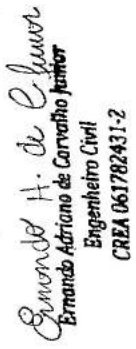 Ernando A. de C. Junior
Ernando Adriano de Carvalho Junior
Engenheiro Civil
CREA 061782431-2